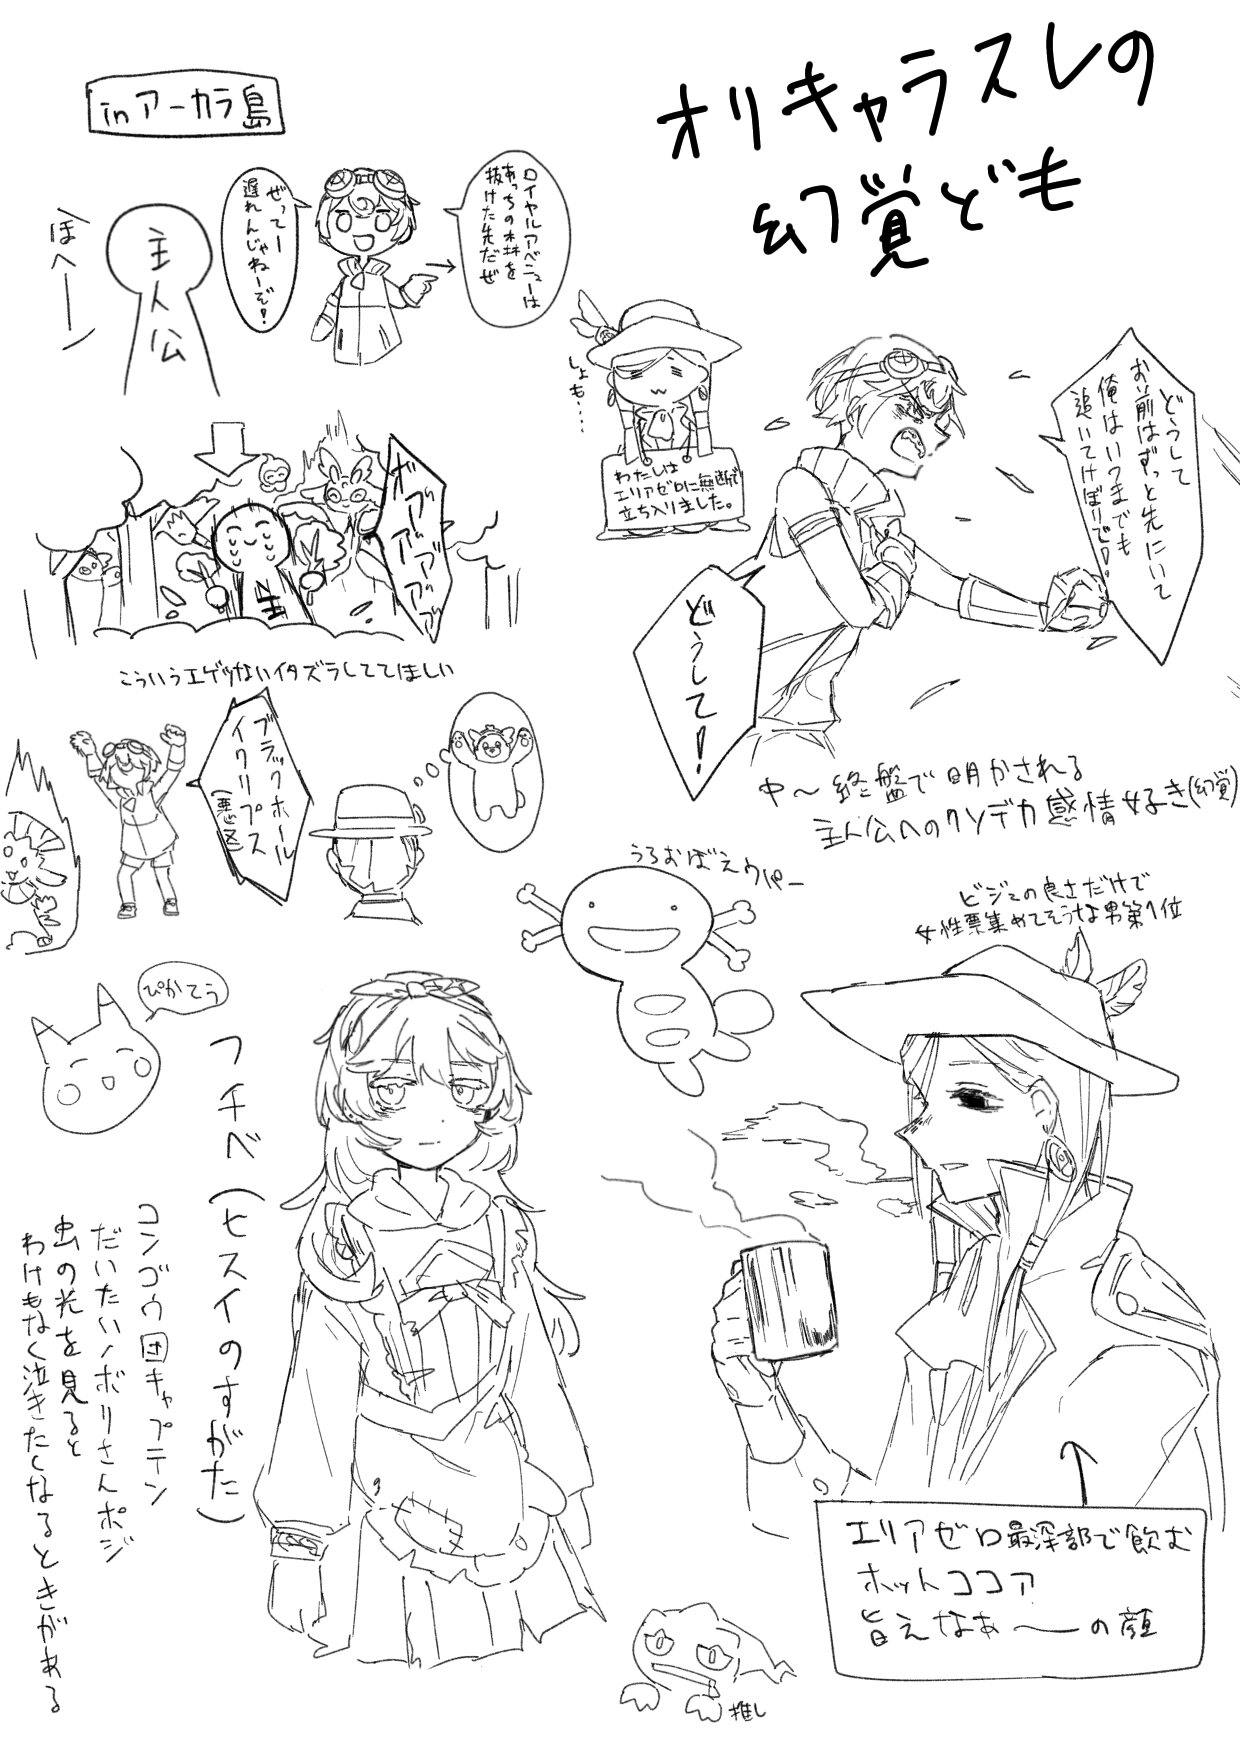 オリキャラスレの
幻覚ども
inアーカラ島
ロイヤルアベニューは
あっちの森を
抜けた先だぜ
ぜってー
遅れんじゃねーぞ!
主人公
ほへー
しょも…
わたしは
エリアゼロに無断で
立ち入りました。
どうして
お前はずっと先にいて
俺はいつまでも
追いてけぼりで!
どうして!
中〜終盤で明かされる
主人公へのクソデカ感情好き(幻覚)
ギャアアアアアア
主
こういうエゲツないイタズラしててほしい
ブラックホール
イクリプス
(悪**)
うろおぼえウパー
ビジュの良さだけで
女性票集めてそうな男第1位
ぴかてう
フチベ(ヒスイのすがた)
コンゴウ団キャプテン
だいたいノボリさんポジ
虫の光を見ると
わけもなく泣きたくなるときがある
エリアゼロ最深部で飲む
ホットココア
旨えなあ〜の顔
推し